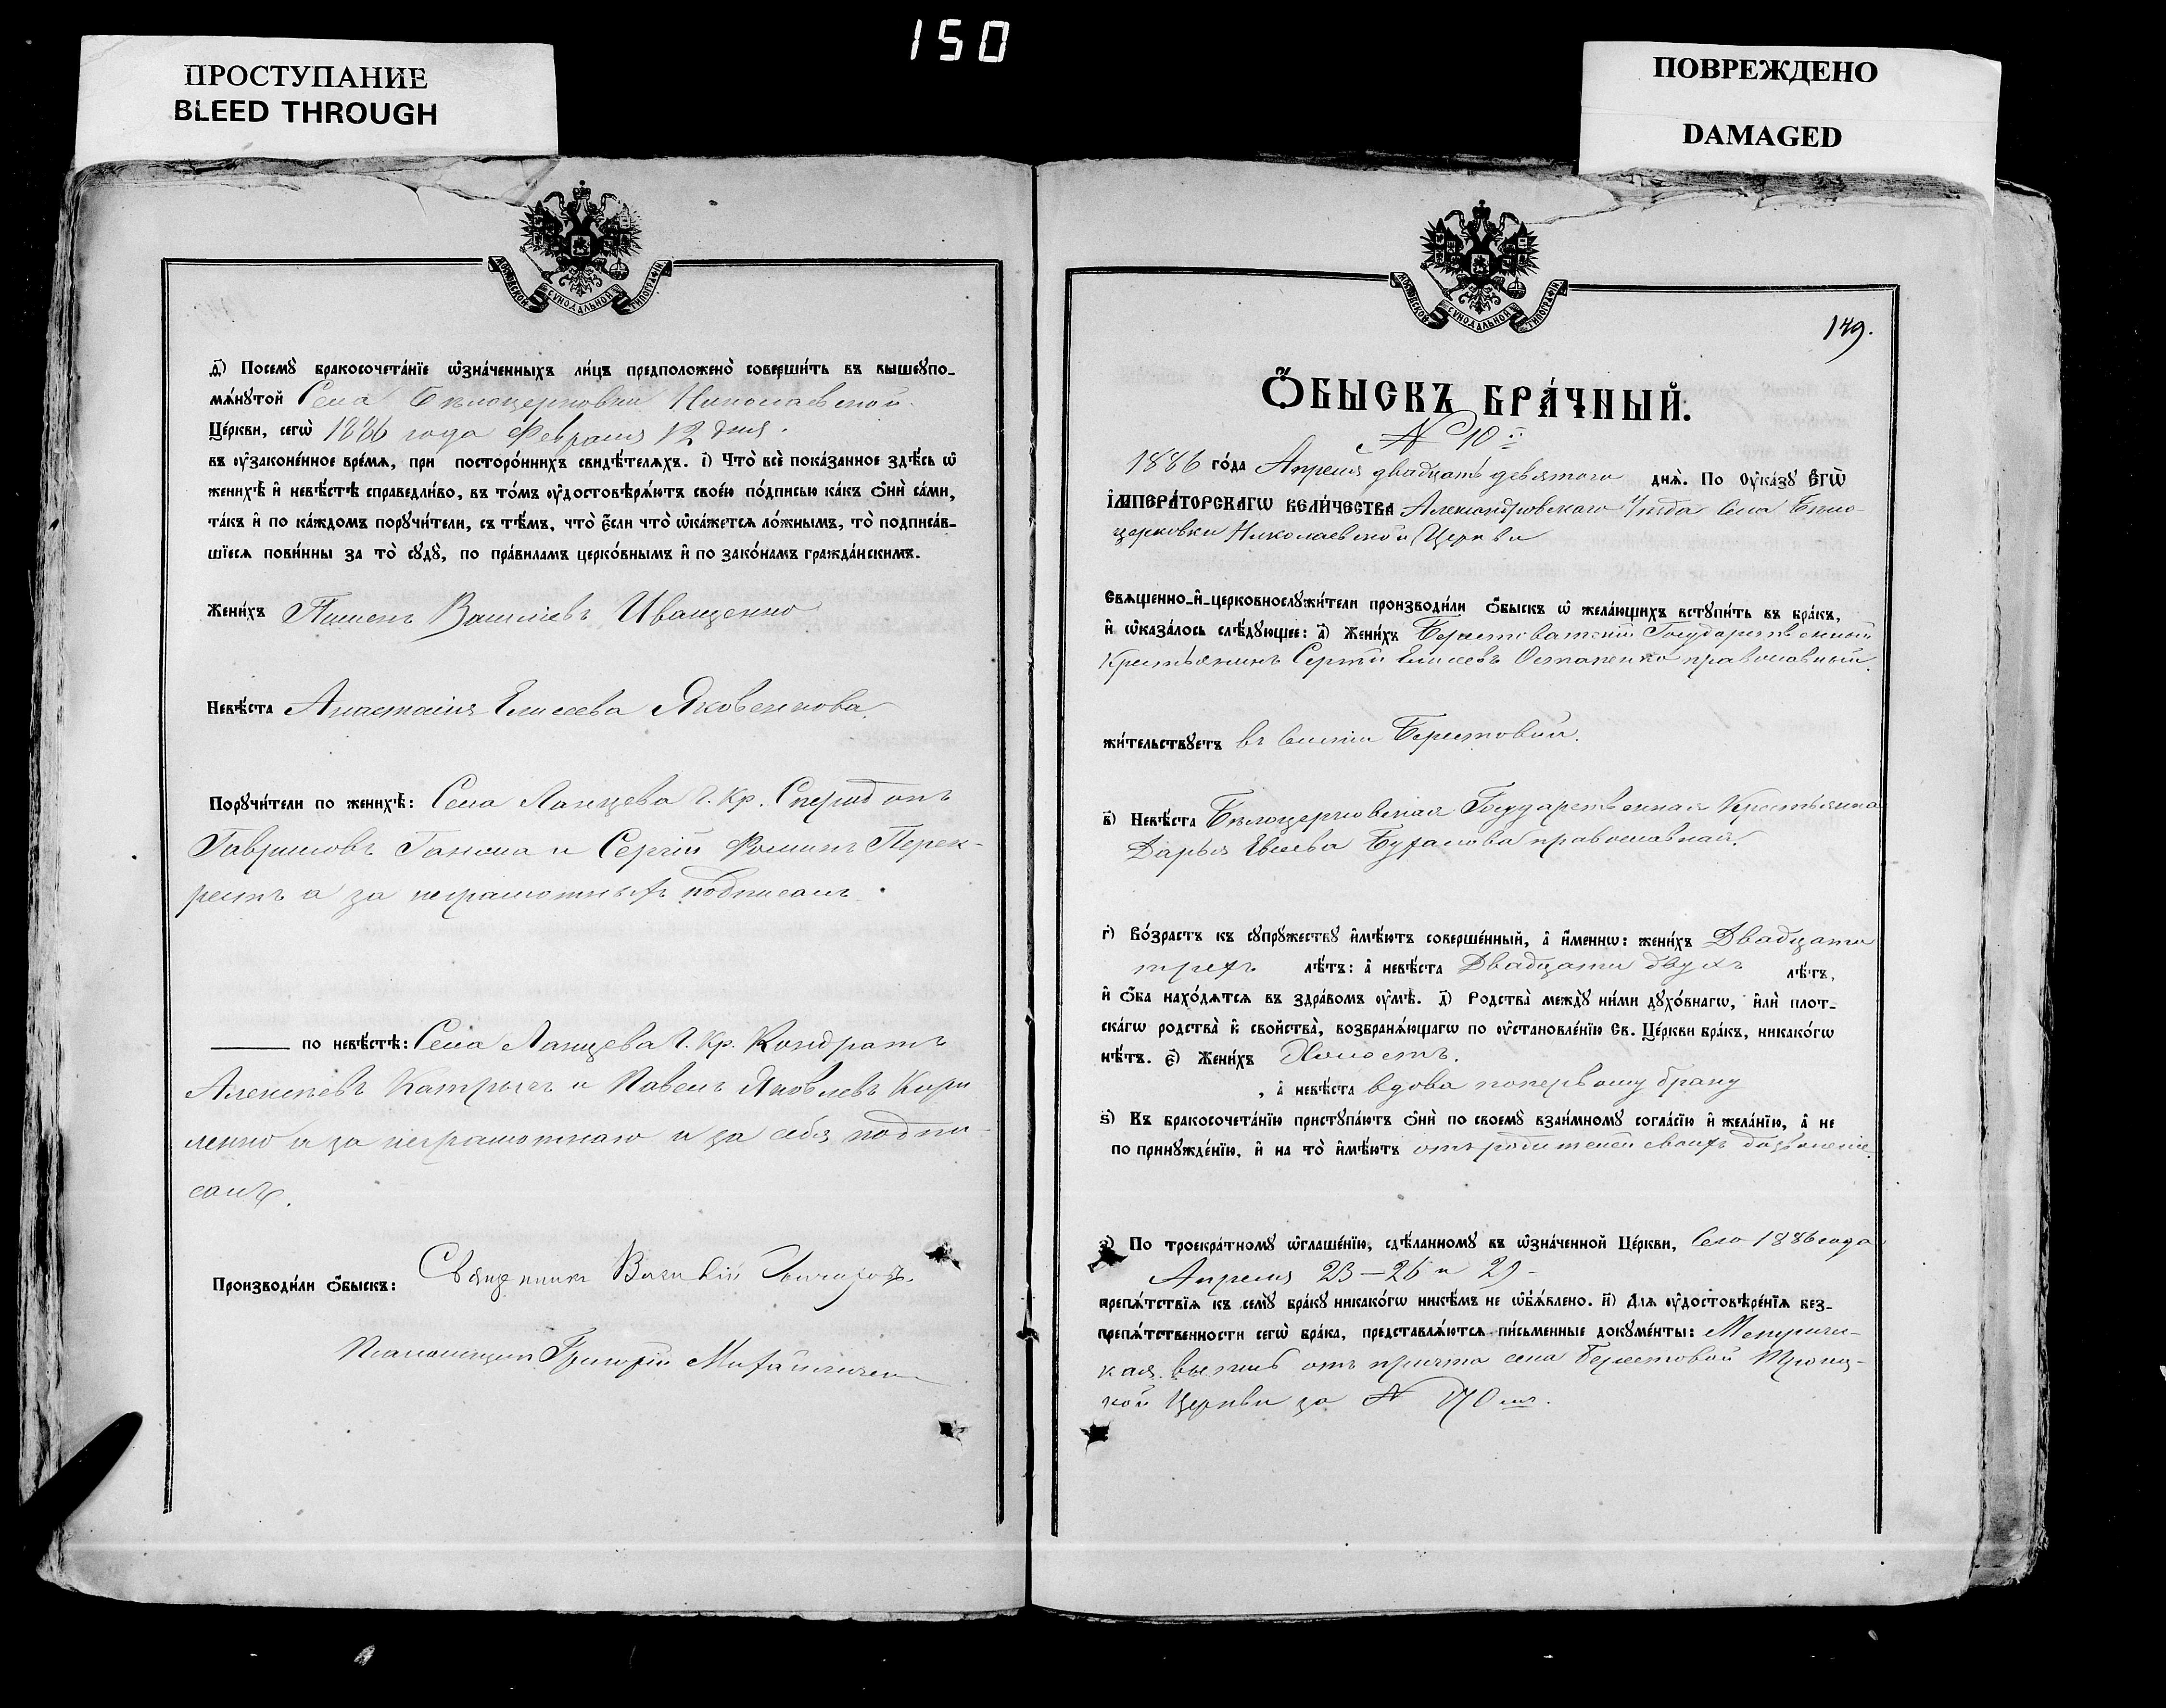 150
ПРОСТУПАНИЕ
BLEED THROUGH
ПОВРЕЖДЕНО
DAMAGED
МОСКОВСКОЙ СѴНОДАЛЬНОЙ ТИПОГРАФІИ
д҃) Посемꙋ̀ бракосочета́нїе ѡ҆зна́ченныхъ ли́цъ предположено̀ соверши́ть въ вышеꙋпо-
мѧ́нꙋтой Села Бѣлоцерковки Николаевской
Це́ркви, сегѡ̀ 1886 года Февраля 12 дня.
въ ᲂу҆законе́нное вре́мѧ, при посторо́ннихъ свидѣ́телѧхъ. і҃) Что̀ всѐ пока́занное здѣ́сь ѡ҆
женихѣ̀ и҆ невѣ́стѣ справедли́во, въ то́мъ ᲂу҆достовѣрѧ́ютъ свое́ю по́дписью ка́къ ѻ҆нѝ са́ми,
та́къ и҆ по ка́ждомъ порꙋчи́тели, съ тѣ́мъ, что̀ є҆́сли что̀ ѡ҆ка́жетсѧ ло́жнымъ, то̀ подписа́в-
шїесѧ пови́нны за то̀ сꙋдꙋ̀, по пра́виламъ церко́внымъ и҆ по зако́намъ гражда́нскимъ.
Жени́хъ Пимен Васильевъ Иващенко
Невѣ́ста Анастасія Елисеева Яковенкова
Порꙋчи́тели по женихѣ̀: Села Ланцева Г. Кр. Спиридонъ
Гавриловъ Ганжа и Сергій Фоминъ Перек-
рестъ а за неграмотныхъ подписалъ
по невѣ́стѣ: Села Ланцева Г. Кр. Кондратъ
Алексѣевъ Катричъ и Павелъ Яковлевъ Кири
ленко и за неграмотнаго и за себя подпи-
салъ.
Производи́ли ѻ҆́быскъ: Священникъ
Псаломщикъ Григорій
МОСКОВСКОЙ СѴНОДАЛЬНОЙ ТИПОГРАФІИ
149.
Ѻ҆́БЫСКЪ БРА́ЧНЫЙ.
№ 10й
1886 го́да Апреля двадцать девятого днѧ̀. По ᲂу҆ка́зꙋ Є҆ГѠ̀
І҆МПЕРА́ТОРСКАГѠ ВЕЛИ́ЧЕСТВА Александровскаго Уѣзда Села Бѣло-
церковки Николаевской Церкви
Сващенно-и҆-церковнослꙋжи́тели производи́ли ѻ҆́быскъ ѡ҆ жела́ющихъ встꙋпи́ть въ бра́къ,
и҆ ѡ҆каза́лось слѣ́дꙋющее: а҃) Жени́хъ Берестоватскій Государственный
Крестьянинъ Сергѣй Елисеевъ Остапенко православный.
жи́тельствꙋетъ въ селеніи Берестовой.
в҃) Невѣ́ста Бѣлоцерковская Государственная Крестьянка
Дарья Евсеева православная.
г҃) Во́зрастъ къ сꙋпрꙋжествꙋ̀ и҆мѣ́ютъ соверше́нный, а҆ и҆́меннѡ: жени́хъ Двадцати
трехъ лѣ́тъ: а҆ невѣ́ста Двадцати двухъ лѣ́тъ,
и҆ ѻ҆́ба нахо́дѧтсѧ въ здра́вомъ ᲂу҆мѣ̀. д҃) Родства̀ междꙋ̀ ни́ми дꙋхо́внагѡ, и҆лѝ плот-
ска́гѡ родства̀ и҆ сво́йства̀, возбранѧ́ющагѡ по ᲂу҆становле́нїю Св. Це́ркви бра́къ, никако́гѡ
нѣ́тъ. є҃) Жени́хъ Холостъ.
, а҆ невѣ́ста вдова поперьвому браку
ѕ҃) Къ бракосочета́нїю пристꙋпа́ютъ ѻ҆нѝ по своемꙋ̀ взаи́мномꙋ согла́сїю и҆ жела́нїю, а҆ не
по принꙋжде́нїю, и҆ на то̀ и҆мѣ́ютъ отъ родителей своихъ дозволеніе.
з҃) По троекра́тномꙋ ѡ҆глаше́нїю, сдѣ́ланномꙋ въ ѡ҆зна́ченной Це́ркви, Сего 1886 года
Апреля 23–26 и 29–
препѧ́тствїѧ къ семꙋ̀ бра́кꙋ никако́гѡ никѣ́мъ не ѡ҆б̾ѧ́влено. и҃) Длѧ ᲂу҆достовѣре́нїѧ без-
препѧ́тственности сегѡ̀ бра́ка, представлѧ́ютсѧ пи́сьменные докꙋме́нты: Метриче-
кая выпись отъ причта села Берестовой Троиц-
кой Церкви за № 170мъ.